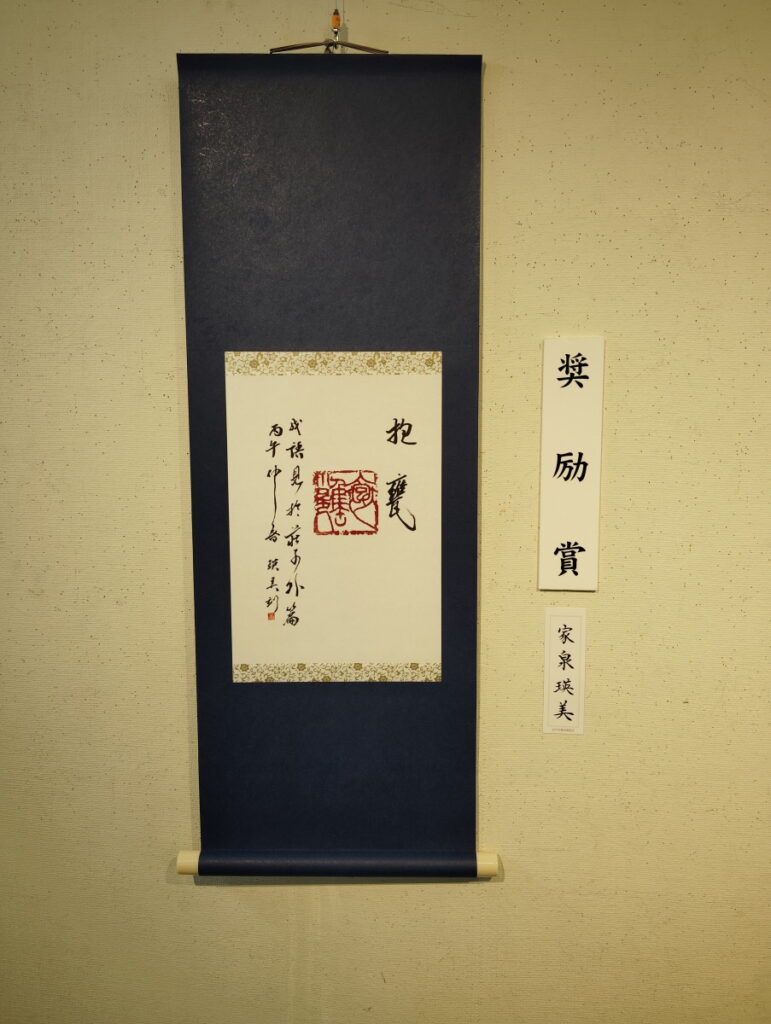 奨励賞
家泉瑛美
抱甕
成語見於荘子外篇
丙午仲春 瑛美刻